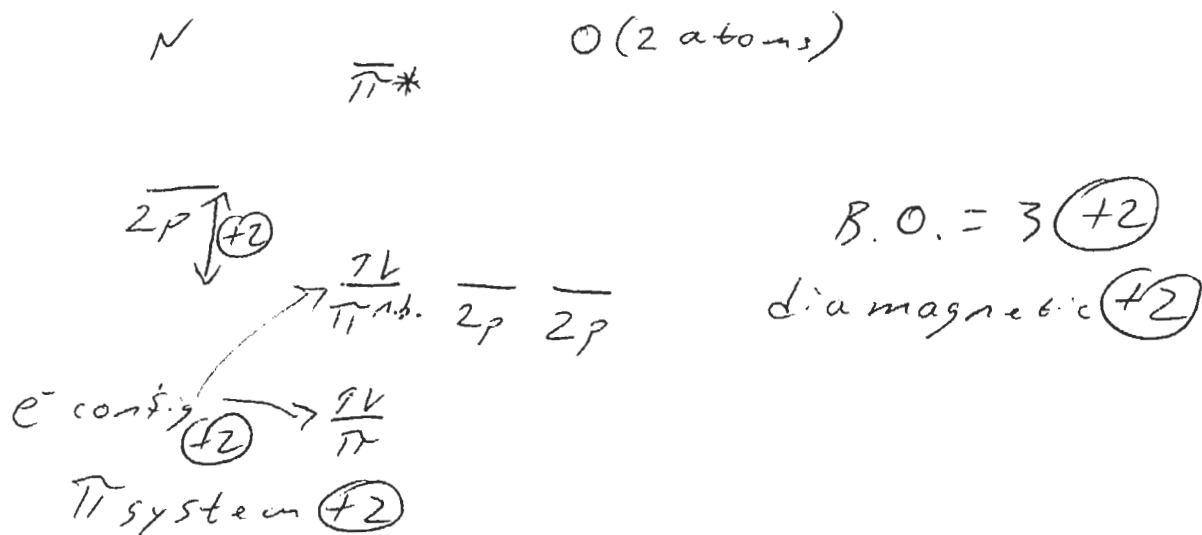 N O (2 atoms)
π*
2p +2
B.O. = 3 +2
π n.b. 2p 2p
diamagnetic +2
e⁻ config +2
π
π system +2